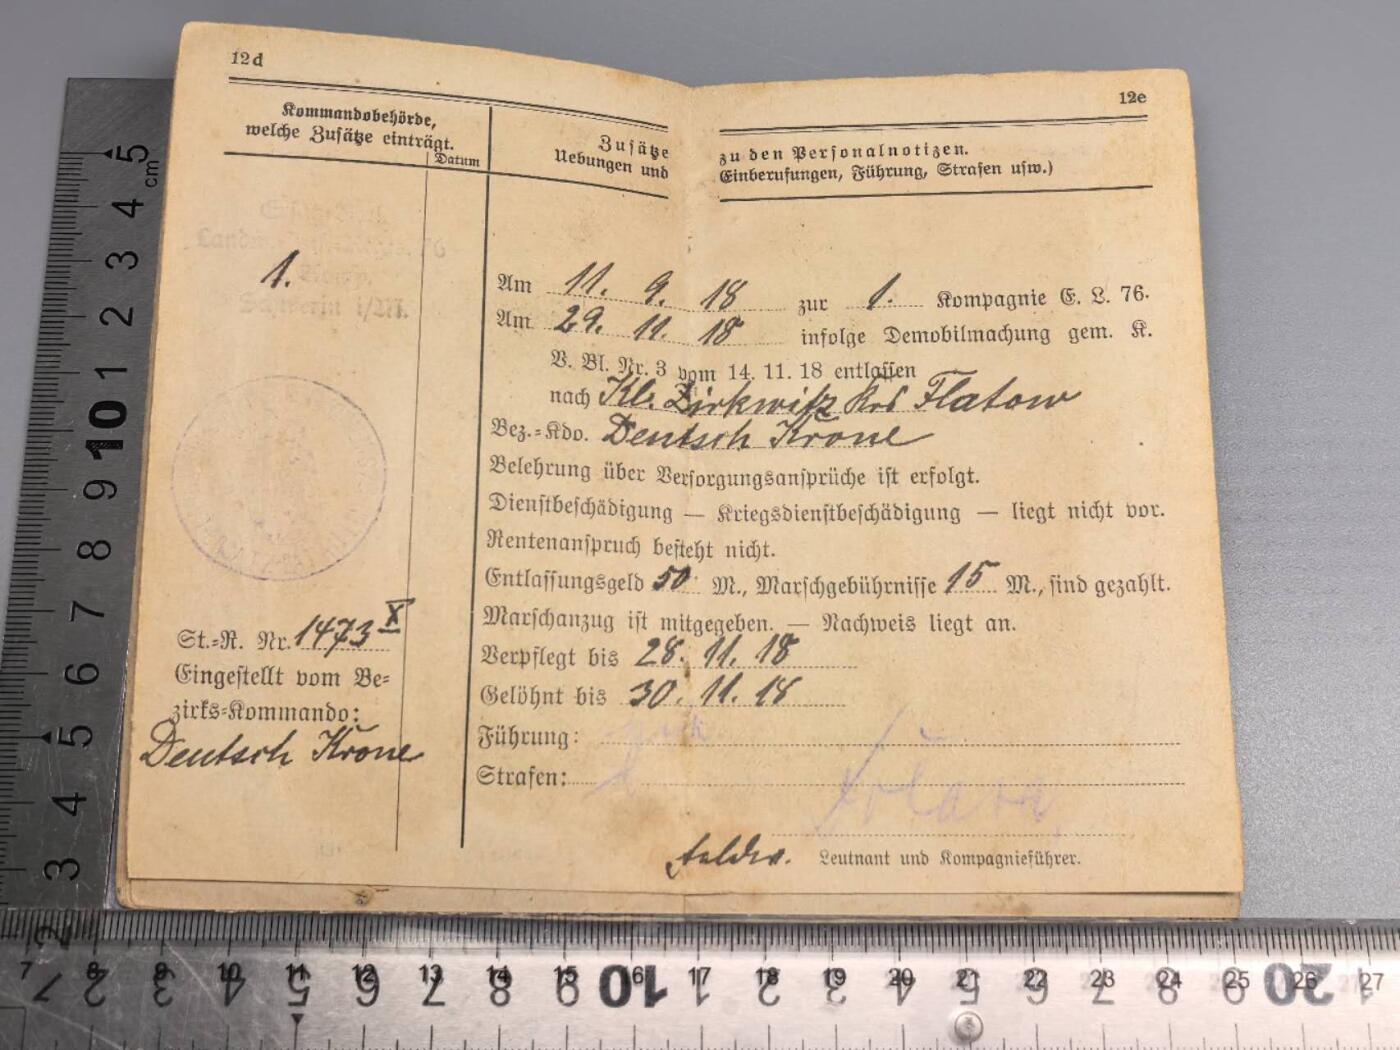 12d
Kommandobehörde,
welche Zusätze einträgt.
Datum
Zusätze
Uebungen und
12e
zu den Personalnotizen.
Einberufungen, Führung, Strafen usw.)
Schwerin i/M.
1.
St.-R. Nr. 1473 X
Eingestellt vom Be-
zirks-Kommando:
Deutsch Krone
Am 11. 9. 18 zur 1. Kompagnie E. L. 76.
Am 29. 11. 18 infolge Demobilmachung gem. K.
V. Bl. Nr. 3 vom 14. 11. 18 entlassen
nach Kl. Zirkwitz Krs Flatow
Bez.-Kdo. Deutsch Krone
Belehrung über Versorgungsansprüche ist erfolgt.
Dienstbeschädigung — Kriegsdienstbeschädigung — liegt nicht vor.
Rentenanspruch besteht nicht.
Entlassungsgeld 50 M., Marschgebührnisse 15 M., sind gezahlt.
Marschanzug ist mitgegeben. — Nachweis liegt an.
Verpflegt bis 28. 11. 18
Gelöhnt bis 30. 11. 18
Führung:
Strafen:
Feldw. Leutnant und Kompagnieführer.
5 cm 4 3 2 1 10 9 8 7 6 5 4 3 2
7 8 9 10 11 12 13 14 15 16 17 18 19 20 21 22 23 24 25 26 27
2 3 4 5 6 7 8 9 10 1 2 3 4 5 6 7 8 9 20 1